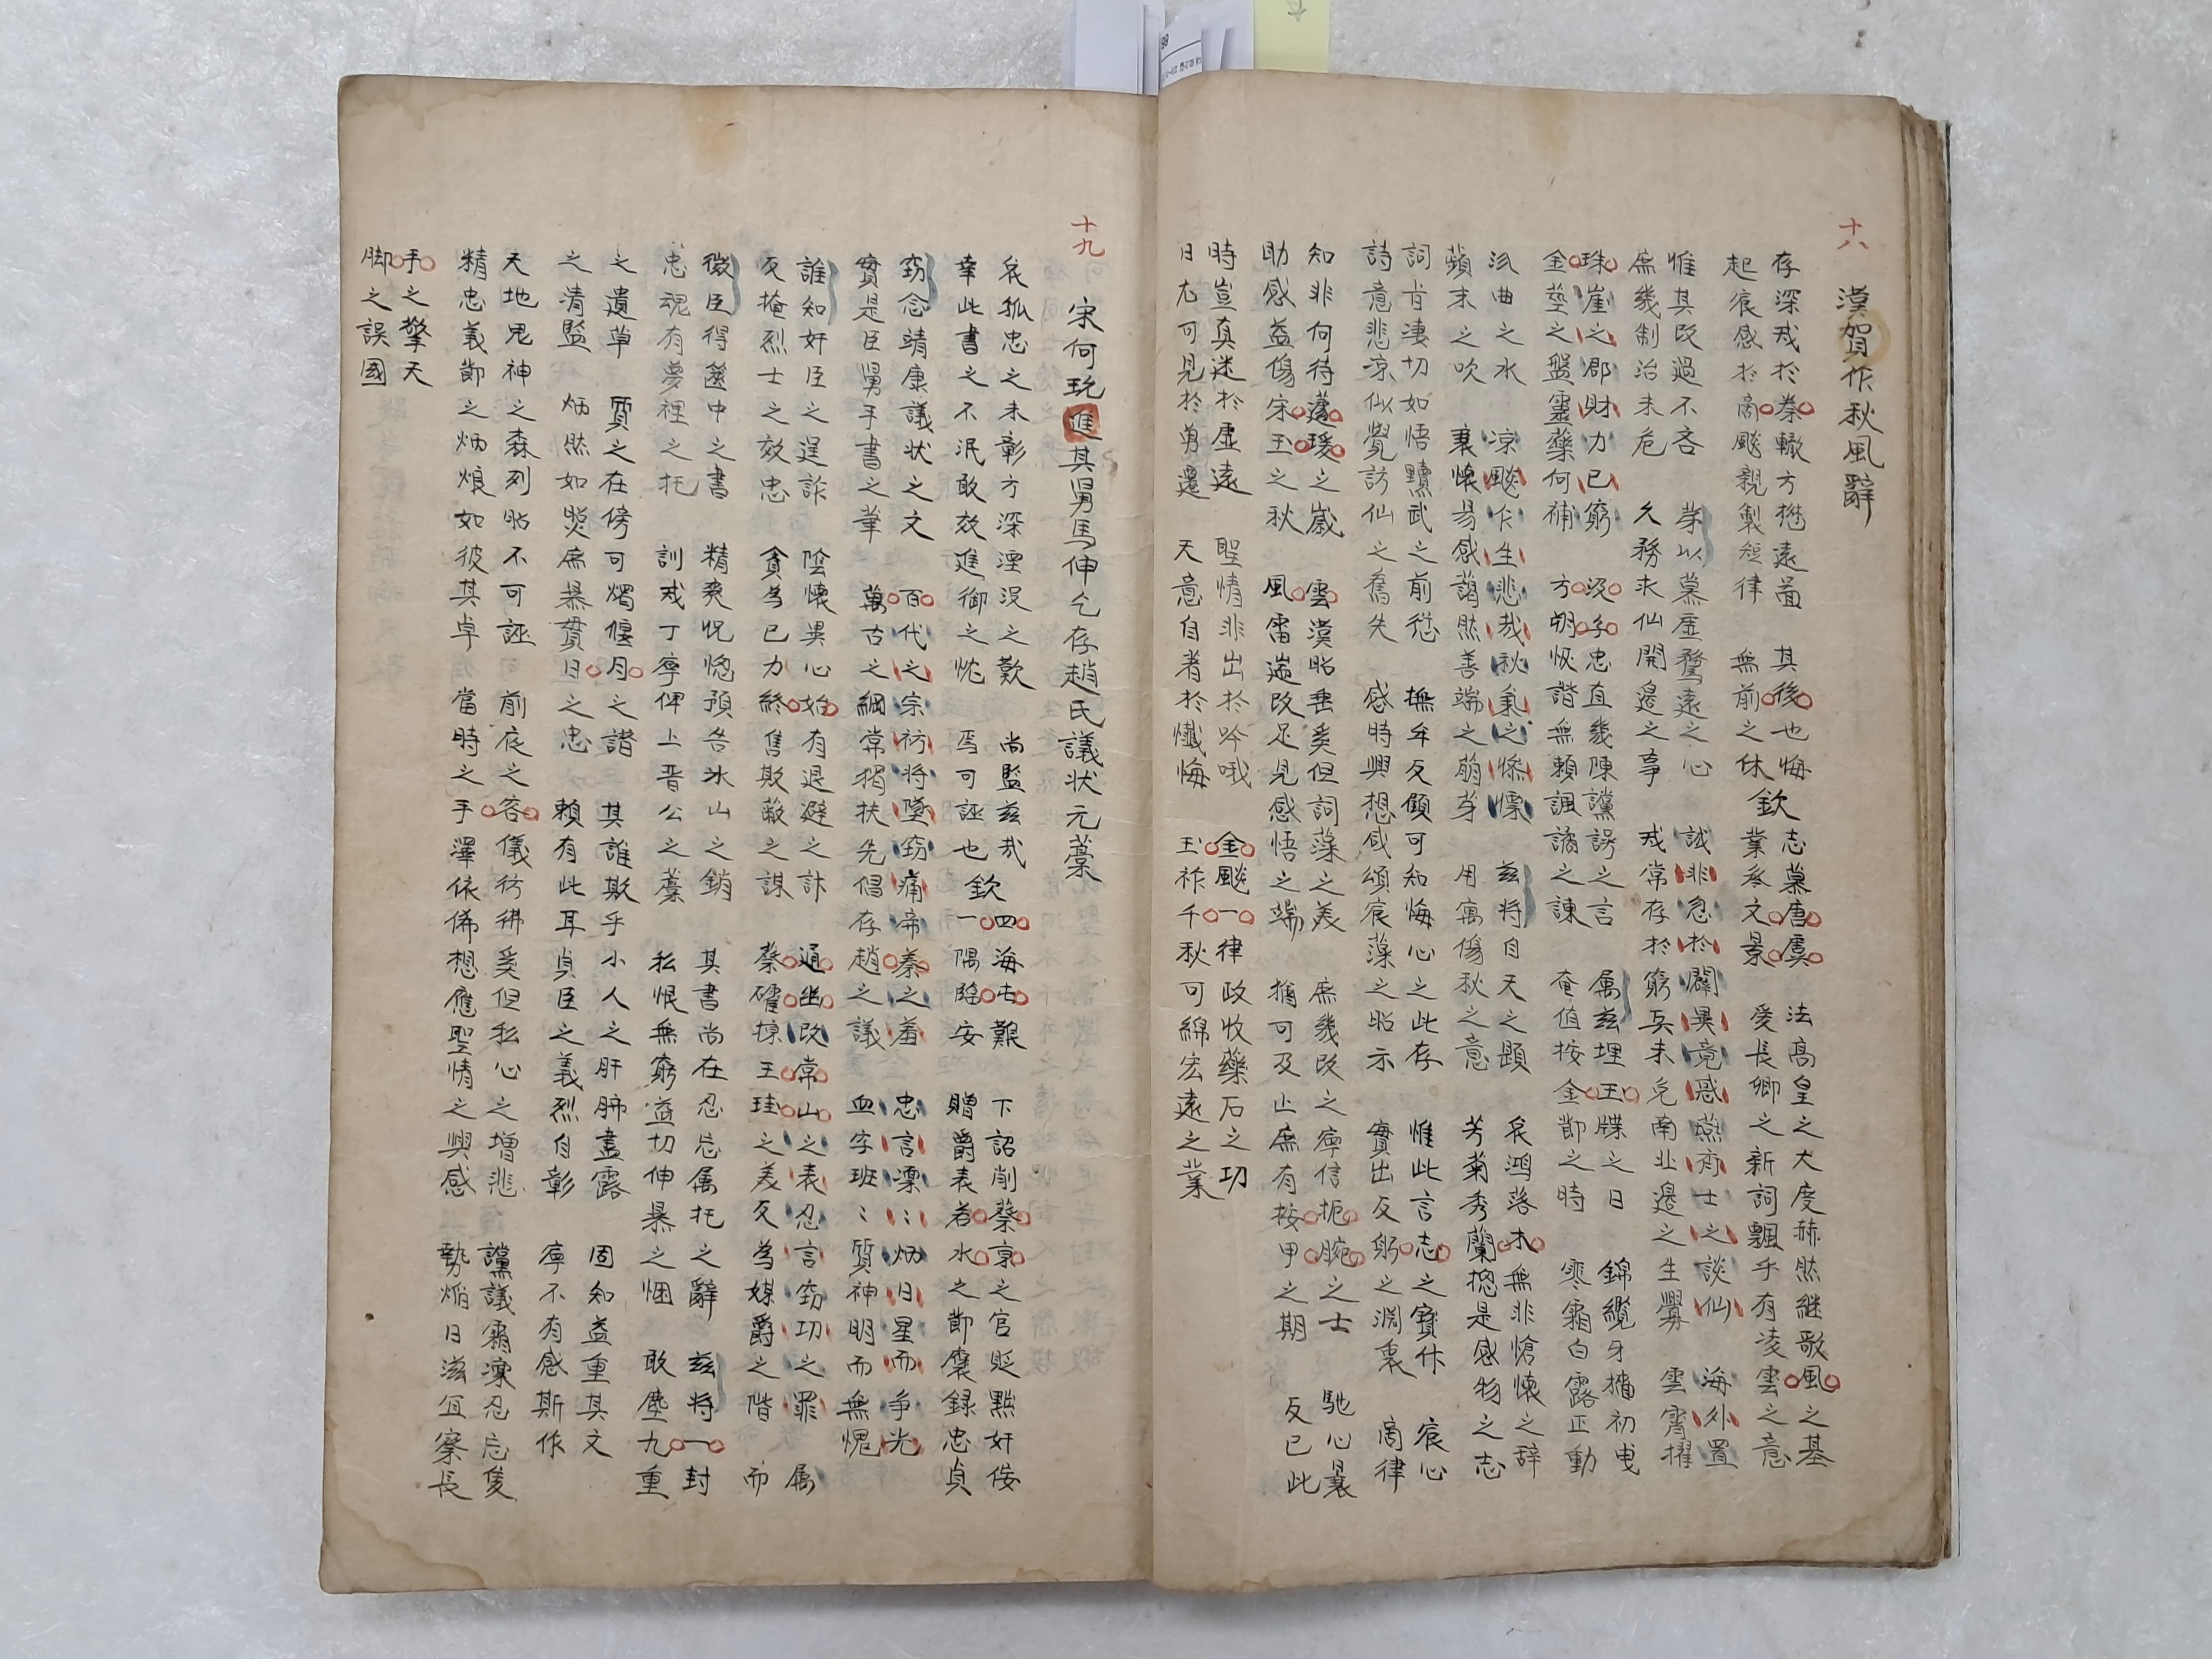 十八
漢賀作秋風辭
存深戒於秦轍方懋遠啚 其後也悔 志慕唐虞 法高皇之大度赫然継歌風之基
起哀感於商颷親製短律 無前之休 欽 業參文景 爰長卿之新詞飄乎有凌雲之意
惟其改過不吝 粤以慕虛騖遠之心 誠非急於闢異竟惑燕齊士之談仙 海外置
庶幾制治未危 久務求仙開邊之事 戒常存於窮兵未免南北邊之生釁 雲霄擢
珠崖之郡財力已窮 汲子忠直幾陳讜諤之言 属玆埋玉牒之日 錦纜牙檣初曳
金莖之盤靈藥何補 方朔恢諧無賴諷諭之諫 奄值按金節之時 寒霜白露正動
汎曲之水 凉颷乍生悲哉秋氣之憭慄 玆將自天之題 哀鴻落木無非愴懷之辞
蘋末之吹 衷懷易感藹然善端之萠芽 用寓傷秋之意 芳菊秀蘭摠是感物之志
詞肯凄切如悟黷武之前愆 撫年反顧可知悔心之此存 惟此言志之寶什 宸心
詩意悲凉似覺訪仙之舊失 感時興想感頌宸藻之昭示 實出反躬之淵衷 商律
知非何待蘧瑗之歲 雲漢昭垂奚但詞藻之美 庶幾改之寧信扼腕之士 馳心曩
助感益傷宋玉之秋 風雷遄改足見感悟之端 猶可及止庶有按甲之期 反已此
時豈真迷於虛遠 聖情非出於吟哦 金颷一律政收藥石之功
日尤可見於勇遷 天意自著於懺悔 玉祚千秋可綿宏遠之業
十九
宋何珫進其舅馬伸乞存趙氏議状元藁
哀孤忠之未彰方深湮没之歎 尚監玆哉 四海屯艱 下詔削蔡京之官貶黜奸侫
幸此書之不泯敢效進御之忱 焉可誣也 欽 一隅臨安 贈爵表若水之節褒録忠貞
窃念靖康議状之文 百代之宗祊将墜窃痛帝秦之羞 忠言凛〻炳日星而争光
實是臣舅手書之筆 萬古之綱常揭扶先倡存趙之議 血字班〻質神明而無愧
誰知奸臣之逞詐 陰懷異心始有退避之計 通幽改常山之表忍言窃功之罪 属
反掩烈士之效忠 貪為己力終售欺蔽之謀 蔡確掠王珪之美反為媒爵之階 而
微臣得篋中之書 精爽怳惚預告氷山之銷 其書尚在忍忘属托之辭 玆将一封
忠魂有夢裡之托 訓戒丁寧俾上晋公之藁 私恨無窮益切伸暴之悃 敢塵九重
之遺草 質之在傍可燭偃月之譖 其誰欺乎小人之肝肺盡露 固知益重其文
之清監 炳然如奬庶暴貫日之忠 賴有此耳貞臣之義烈自彰 寧不有感斯作
天地鬼神之森列昭不可誣 前夜之容儀彷彿奚但私心之增悲 讜議霜凛忍忘隻
精忠義節之炳烺如彼其卓 當時之手澤依俙想應聖情之興感 勢焰日滋宜察長
手之擎天
脚之誤國